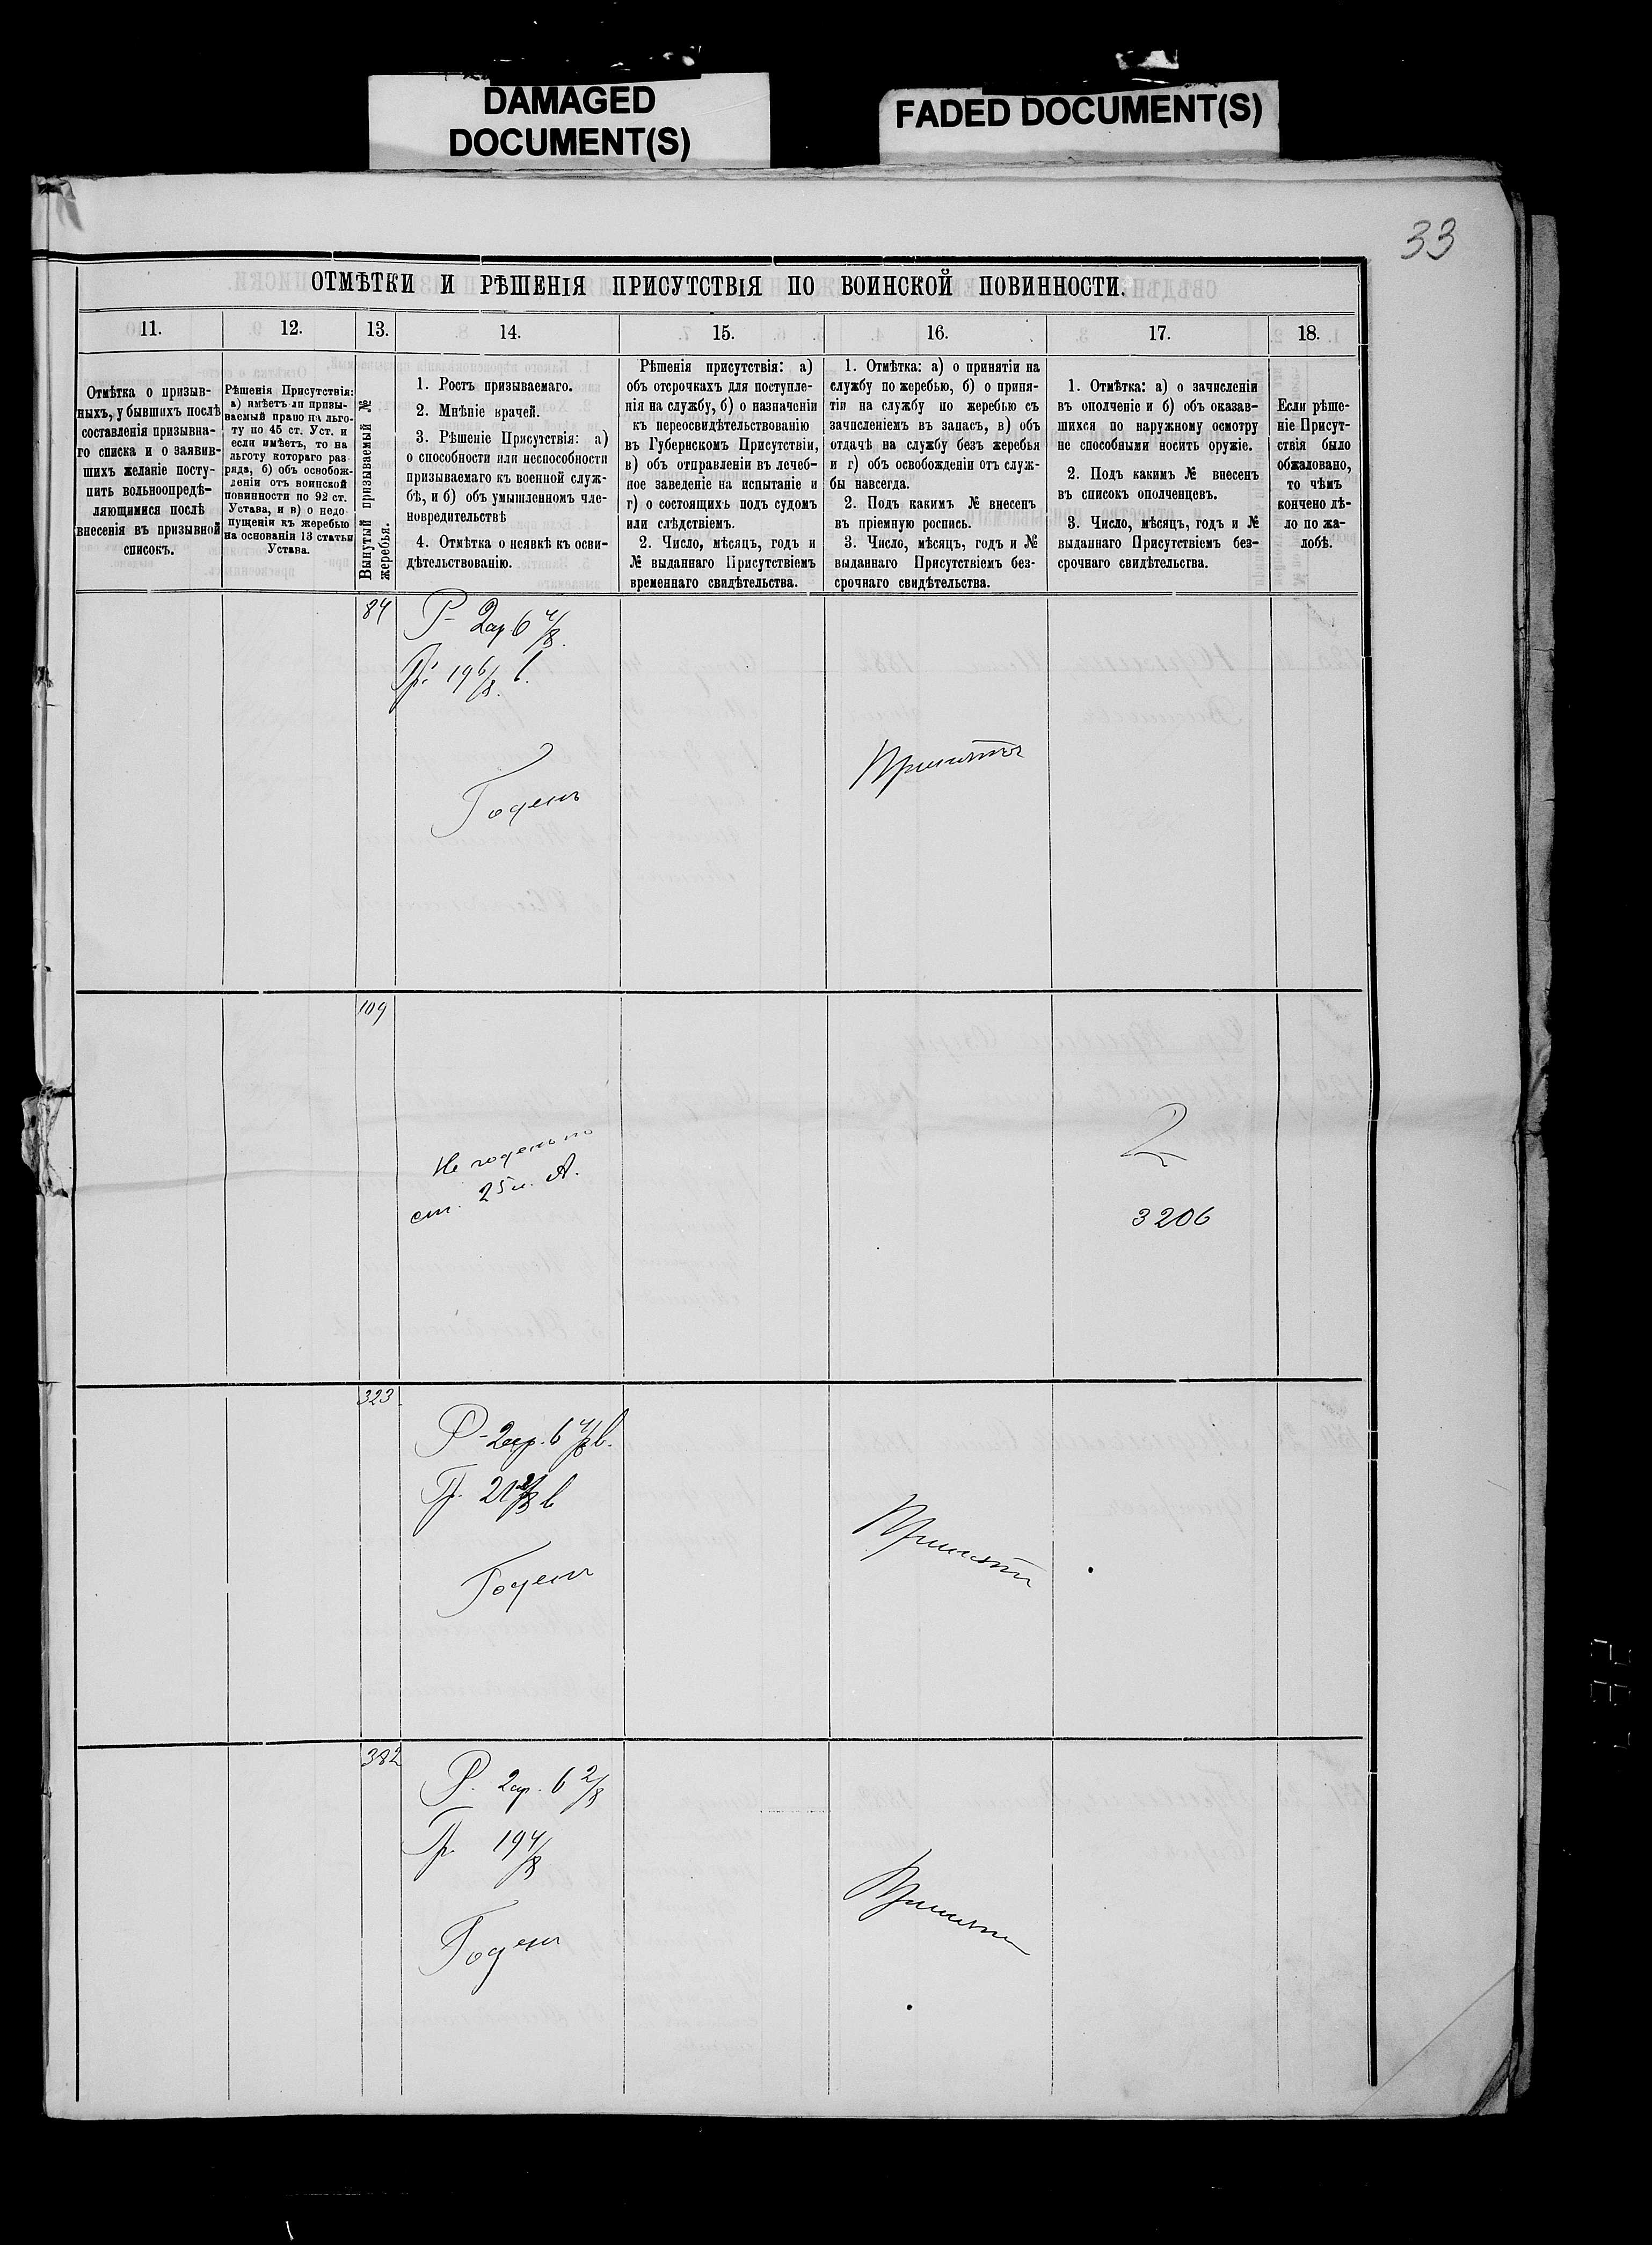 DAMAGED
DOCUMENT(S)
FADED DOCUMENT(S)
33
ОТМѢТКИ И РѢШЕНІЯ ПРИСУТСТВІЯ ПО ВОИНСКОЙ ПОВИННОСТИ.
11.
12.
13.
14.
15.
16.
17.
18.
Отмѣтка о призыв-
ныхъ, убывшихъ послѣ
составленія призывна-
го списка и о заявив-
шихъ желаніе посту-
пить вольноопредѣ-
ляющимися послѣ
внесенія въ призывной
списокъ.
Рѣшенія Присутствія:
а) имѣетъ ли призы-
ваемый право на льго-
ту по 45 ст. Уст. и
если имѣетъ, то на
льготу котораго раз
ряда, б) объ освобож-
деніи отъ воинской
повинности по 92 ст.
Устава, и в) о недо
пущеніи къ жеребью
на основаніи 13 статьи
Устава.
Вынутый призываемый №
жеребья.
1. Ростъ призываемаго.
2. Мнѣніе врачей.
3. Рѣшеніе Присутствія: а)
о способности или неспособности
призываемаго къ военной служ-
бѣ, и б) объ умышленномъ чле-
новредительствѣ
4. Отмѣтка о неявкѣ къ осви-
дѣтельствованію.
Рѣшенія присутствія: а)
объ отсрочкахъ для поступле-
нія на службу, б) о назначеніи
къ переосвидѣтельствованію
въ Губернскомъ Присутствіи,
в) объ отправленіи въ лечеб-
ное заведеніе на испытаніе и
г) о состоящихъ подъ судомъ
или слѣдствіемъ.
2. Число, мѣсяцъ, годъ и
№ выданнаго Присутствіемъ
временнаго свидѣтельства.
1. Отмѣтка: а) о принятіи на
службу по жеребью, б) о приня-
тіи на службу по жеребью съ
зачисленіемъ въ запасъ, в) объ
отдачѣ на службу безъ жеребья
и г) объ освобожденіи отъ служ-
бы навсегда.
2. Подъ какимъ № внесенъ
въ пріемную роспись.
3. Число, мѣсяцъ, годъ и №
выданнаго Присутствіемъ без-
срочнаго свидѣтельства.
1. Отмѣтка: а) о зачисленіи
въ ополченіе и б) объ оказав-
шихся по наружному осмотру
не способными носить оружіе.
2. Подъ какимъ № внесенъ
въ списокъ ополченцевъ.
3. Число, мѣсяцъ, годъ и №
выданнаго Присутствіемъ без-
срочнаго свидѣтельсгва.
Если рѣше-
ніе Присут-
ствія было
обжаловано,
то чѣмъ
кончено дѣ-
ло по жа-
лобѣ.
84
Р- 2ар 6 4/8.
Гр. 19 6/8. в.
Годенъ
Принятъ
109
Не годенъ по
ст. 25 л. А.
2
3206
323
Р-2ар. 6 4/8 в.
Гр. 21 2/8 в
Годенъ
Принятъ
382
Р. 2ар. 6 2/8
Гр. 19 4/8
Годенъ
Принятъ